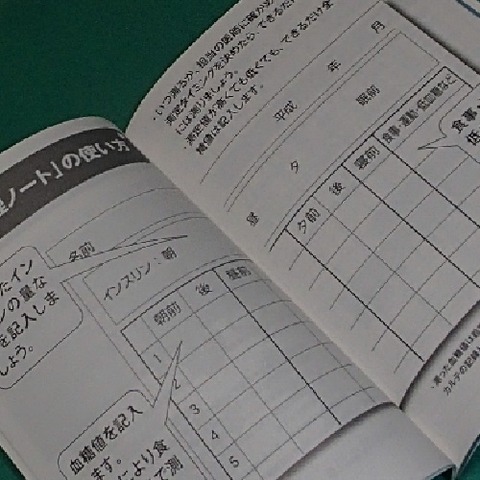 理ノート」の使い方
たイン
ンの量な
を記入しま
しょう。
名前
インスリン：朝
朝前
後
昼前
1
2
3
4
5
血糖値を記入
ます。
により食
で測
いつ測るか、担当の医師に確かめ
測定タイミングを決めたら、できるだけ
には測りましょう。
測定値が高くても低くても、できるだけ全
結果は記入します。
平成
年
月
昼
夕
眠前
夕前
後
寝前
食事・運動・低血糖など
食事
低
カルテの記録